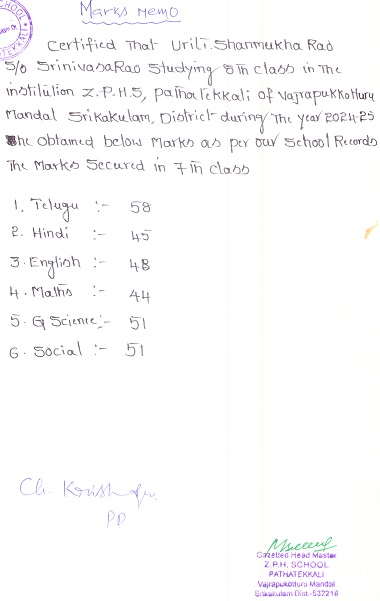 SCHOOL
Marks Memo
Certified That Uriti. Shanmukha Rao
S/o SrinivasaRao Studying 8th class in The
institution Z.P.H.S, pathaTekkali of Vajrapukkotturu
Mandal Srikakulam, District during The year 2024-25
he obtained below Marks as per our School Records
The Marks Secured in 7th class
1. Telugu :- 58
2. Hindi :- 45
3. English :- 48
4. Maths :- 44
5. G Science :- 51
6. Social :- 51
Ch.
PD
Gazetted Head Master
Z.P.H. SCHOOL
PATHATEKKALI
Vajrapukotturu Mandal
Srikakulam Dist.-532218